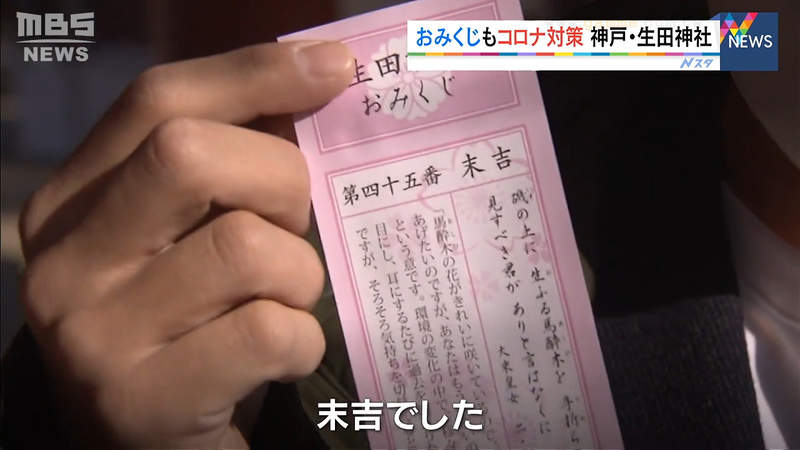 MBS
NEWS
おみくじもコロナ対策 神戸・生田神社
NEWS
Nスタ
生田
おみくじ
第四十五番 末吉
磯の上に 生ふる馬酔木を 手折ら
見すべき君が ありと言はなくに
大来皇女
「馬酔木の花がきれいに咲いてい
あげたいのですが、あなたはもう
という意です。環境の変化の中で
目にし、耳にするたびに過去
ですが、そろそろ気持ちを切
末吉でした